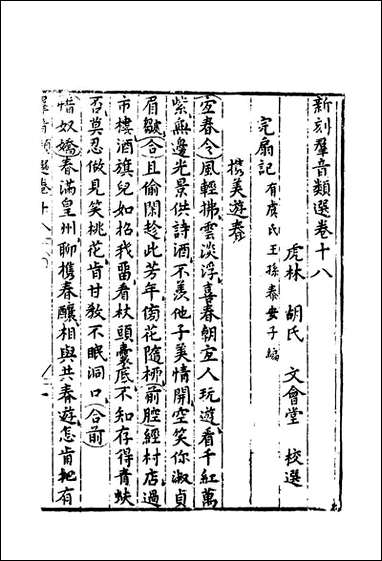 新刻羣音類選卷十八
虎林 胡氏 文會堂 校選
完扇記 有虞氏王孫泰安子編
携美遊春
宜春令 風輕拂雲淡浮喜春朝宜人玩遊看千紅萬
紫無邊光景供詩酒不羨他子美情開空笑你淑貞
眉皺合 且偷閑趂此芳年傍花隨柳 前腔 經村店過
市樓酒旗兒如招我畱看杖頭囊底不知存得青蚨
否莫忍做見笑桃花肯甘教不眠洞口 合前
惜奴嬌 春滿皇州聊携春釀相與共春遊怎肯把有
羣音類選卷十八